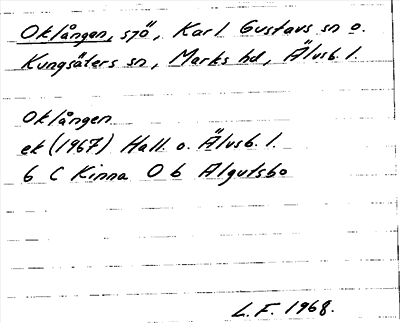 Oklången, sjö, Karl Gustavs sn o.
Kungsäters sn, Marks hd, Älvsb. l.
Oklången
ek (1967) Hall. o. Älvsb. l.
6 C Kinna O b Algutsbo
L. F. 1968.